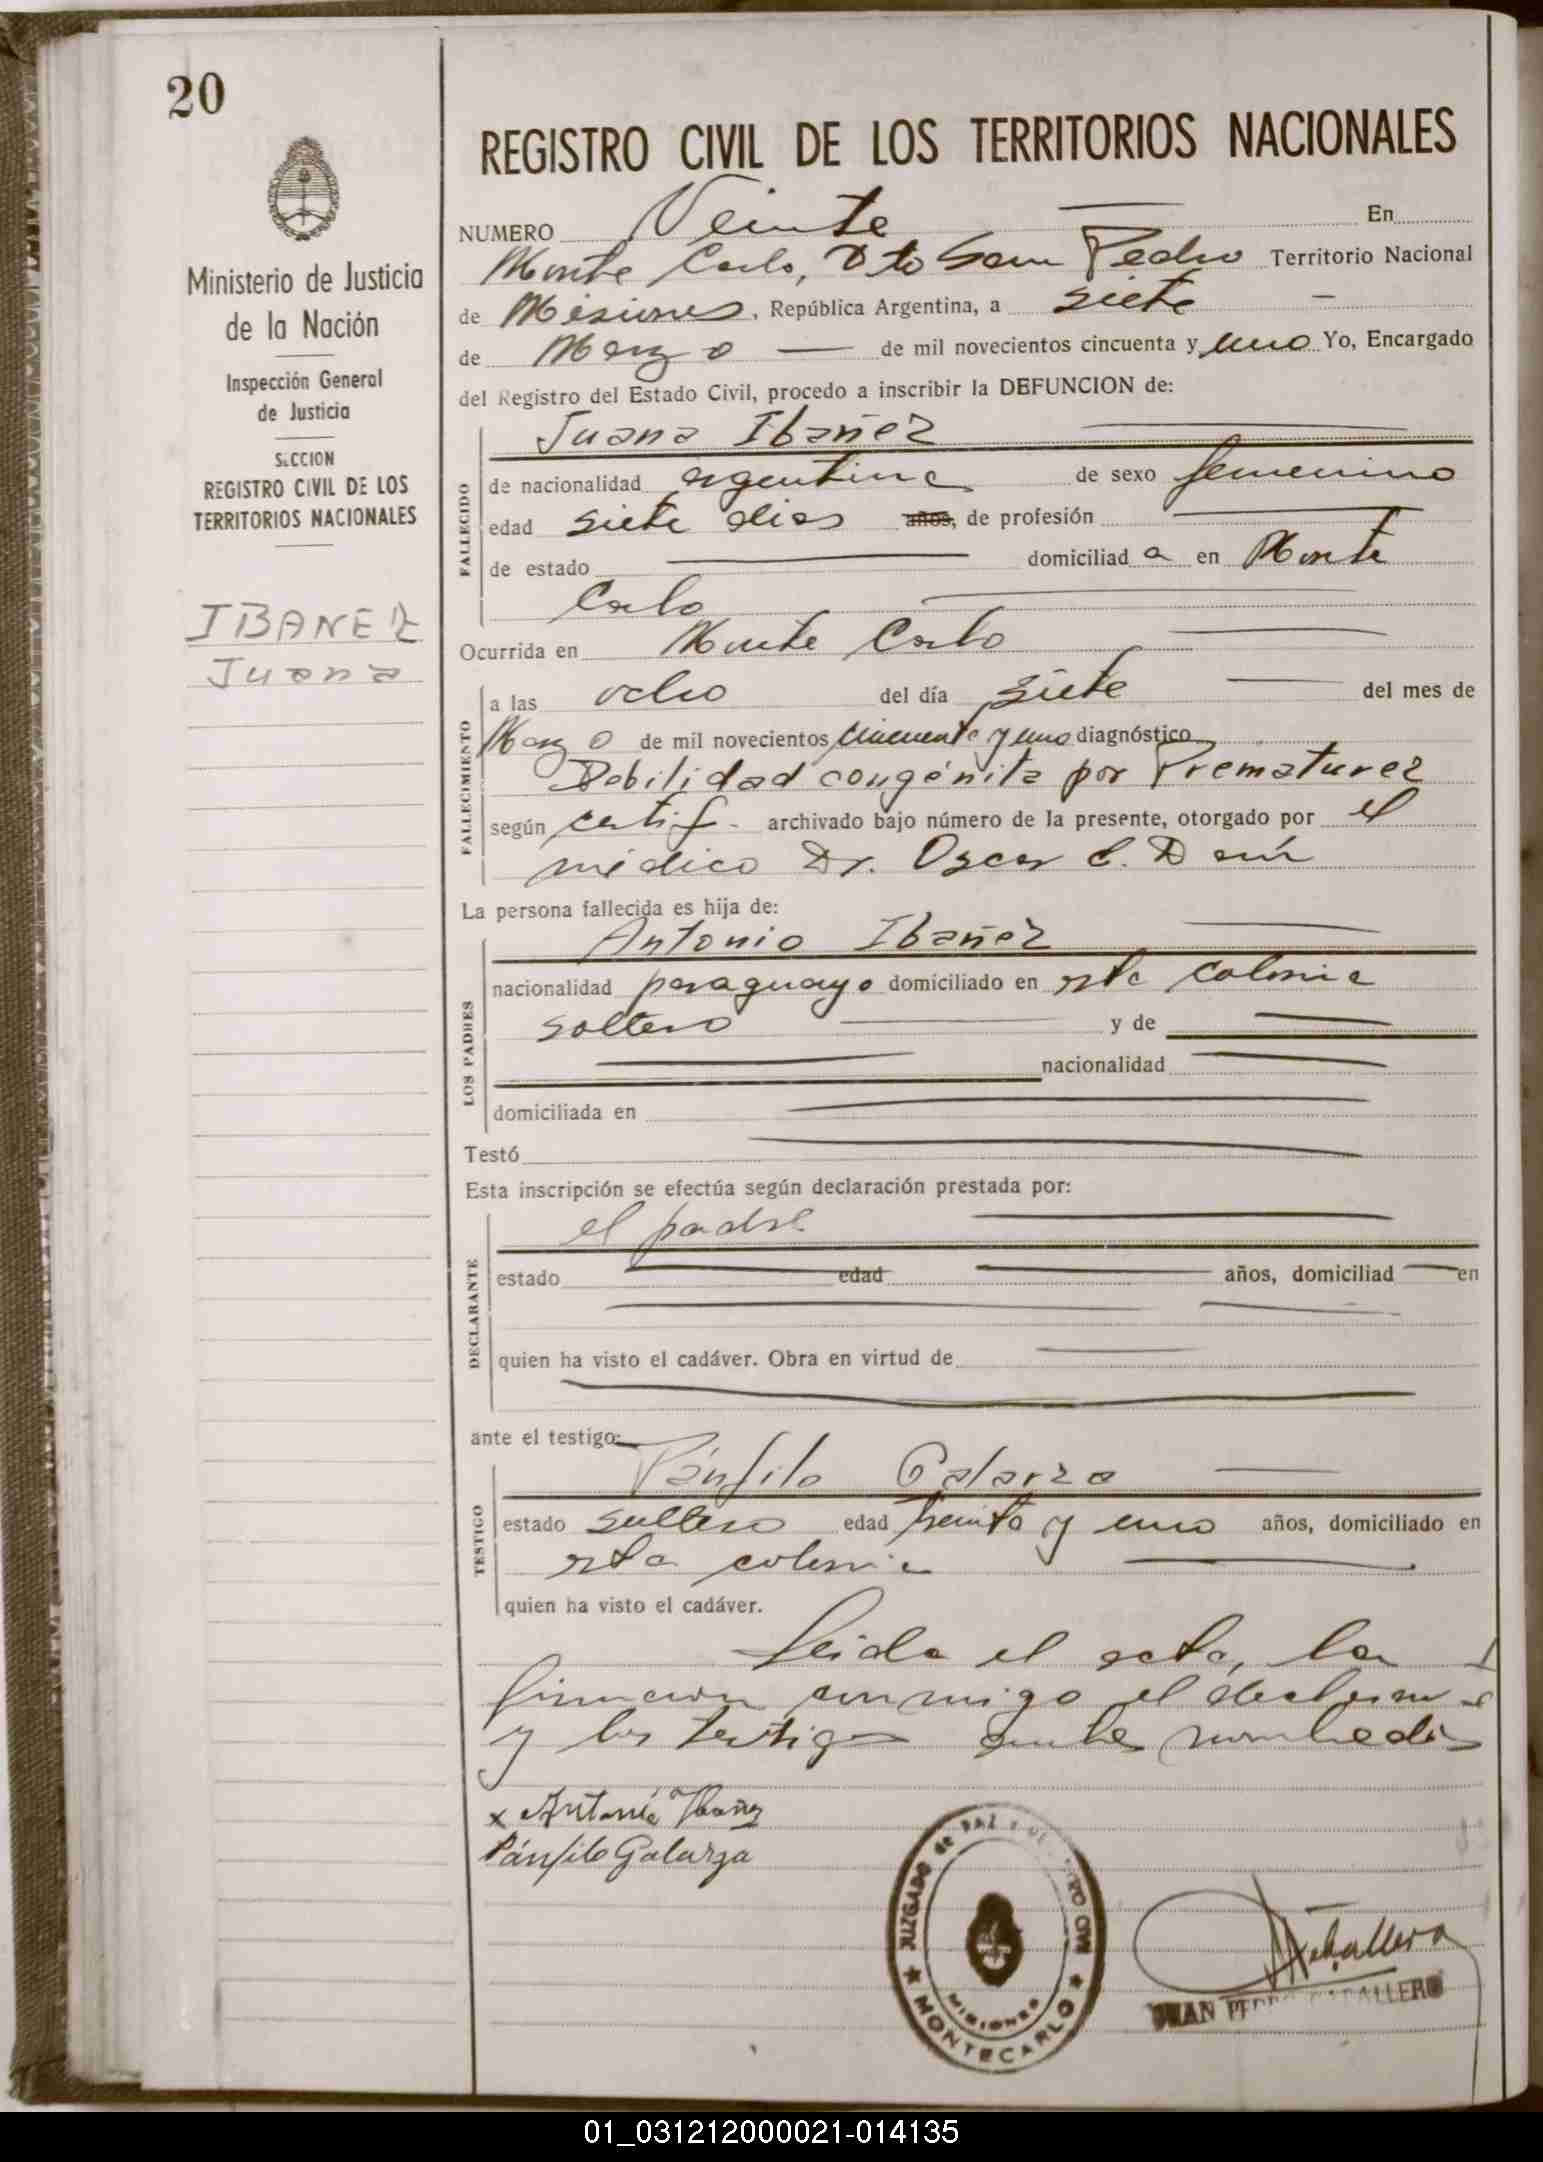 20
Ministerio de Justicia
de la Nación
Inspección General
de Justicia
SECCION
REGISTRO CIVIL DE LOS
TERRITORIOS NACIONALES
IBAÑEZ
Juana
REGISTRO CIVIL DE LOS TERRITORIOS NACIONALES
NUMERO Veinte En
Monte Carlo, Dto San Pedro Territorio Nacional
de Misiones, República Argentina, a siete
de Marzo de mil novecientos cincuenta y uno Yo, Encargado
del Registro del Estado Civil, procedo a inscribir la DEFUNCION de:
Juana Ibañez
FALLECIDO
de nacionalidad argentina de sexo femenino
edad siete dias años, de profesión
de estado domiciliad a en Monte
Carlo
Ocurrida en Monte Carlo
FALLECIMIENTO
a las ocho del día siete del mes de
Marzo de mil novecientos cincuenta y uno diagnóstico
Debilidad congénita por Prematurez
según certif. archivado bajo número de la presente, otorgado por el
médico Dr. Oscar C.
La persona fallecida es hija de:
Antonio Ibañez
LOS PADRES
nacionalidad paraguayo domiciliado en esta colonia
soltero y de
nacionalidad
domiciliada en
Testó
Esta inscripción se efectúa según declaración prestada por:
el padre
DECLARANTE
estado edad años, domiciliad en
quien ha visto el cadáver. Obra en virtud de
ante el testigo:
Pánfilo Galarza
TESTIGO
estado soltero edad treinta y uno años, domiciliado en
esta colonia
quien ha visto el cadáver.
Leida el acta, la
firmaron conmigo el declarante
y los testigos nombrados
x Antonio Ibañez
Pánfilo Galarza
JUZGADO de PAZ Y DEL REGISTRO CIVIL
MISIONES
★ MONTECARLO ★
Caballero
JUAN PEDRO CABALLERO
01_031212000021-014135